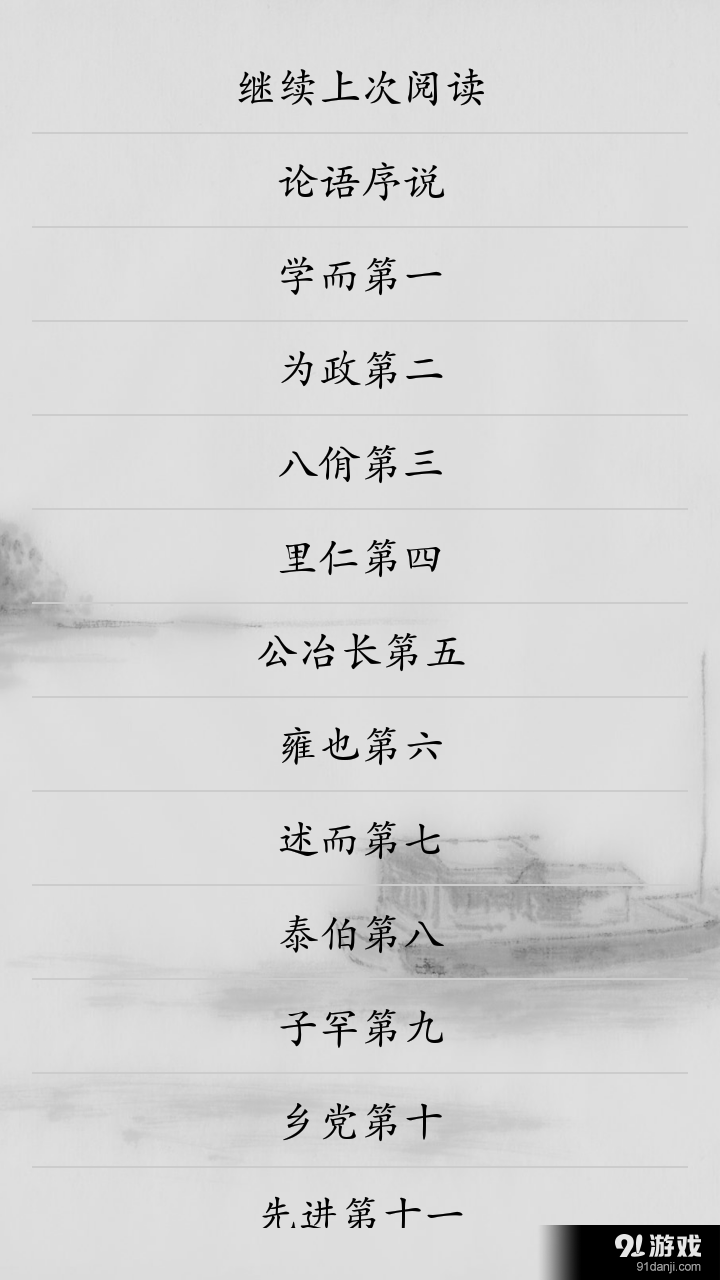 继续上次阅读
论语序说
学而第一
为政第二
八佾第三
里仁第四
公冶长第五
雍也第六
述而第七
泰伯第八
子罕第九
乡党第十
先进第十一
91游戏
91danji.com